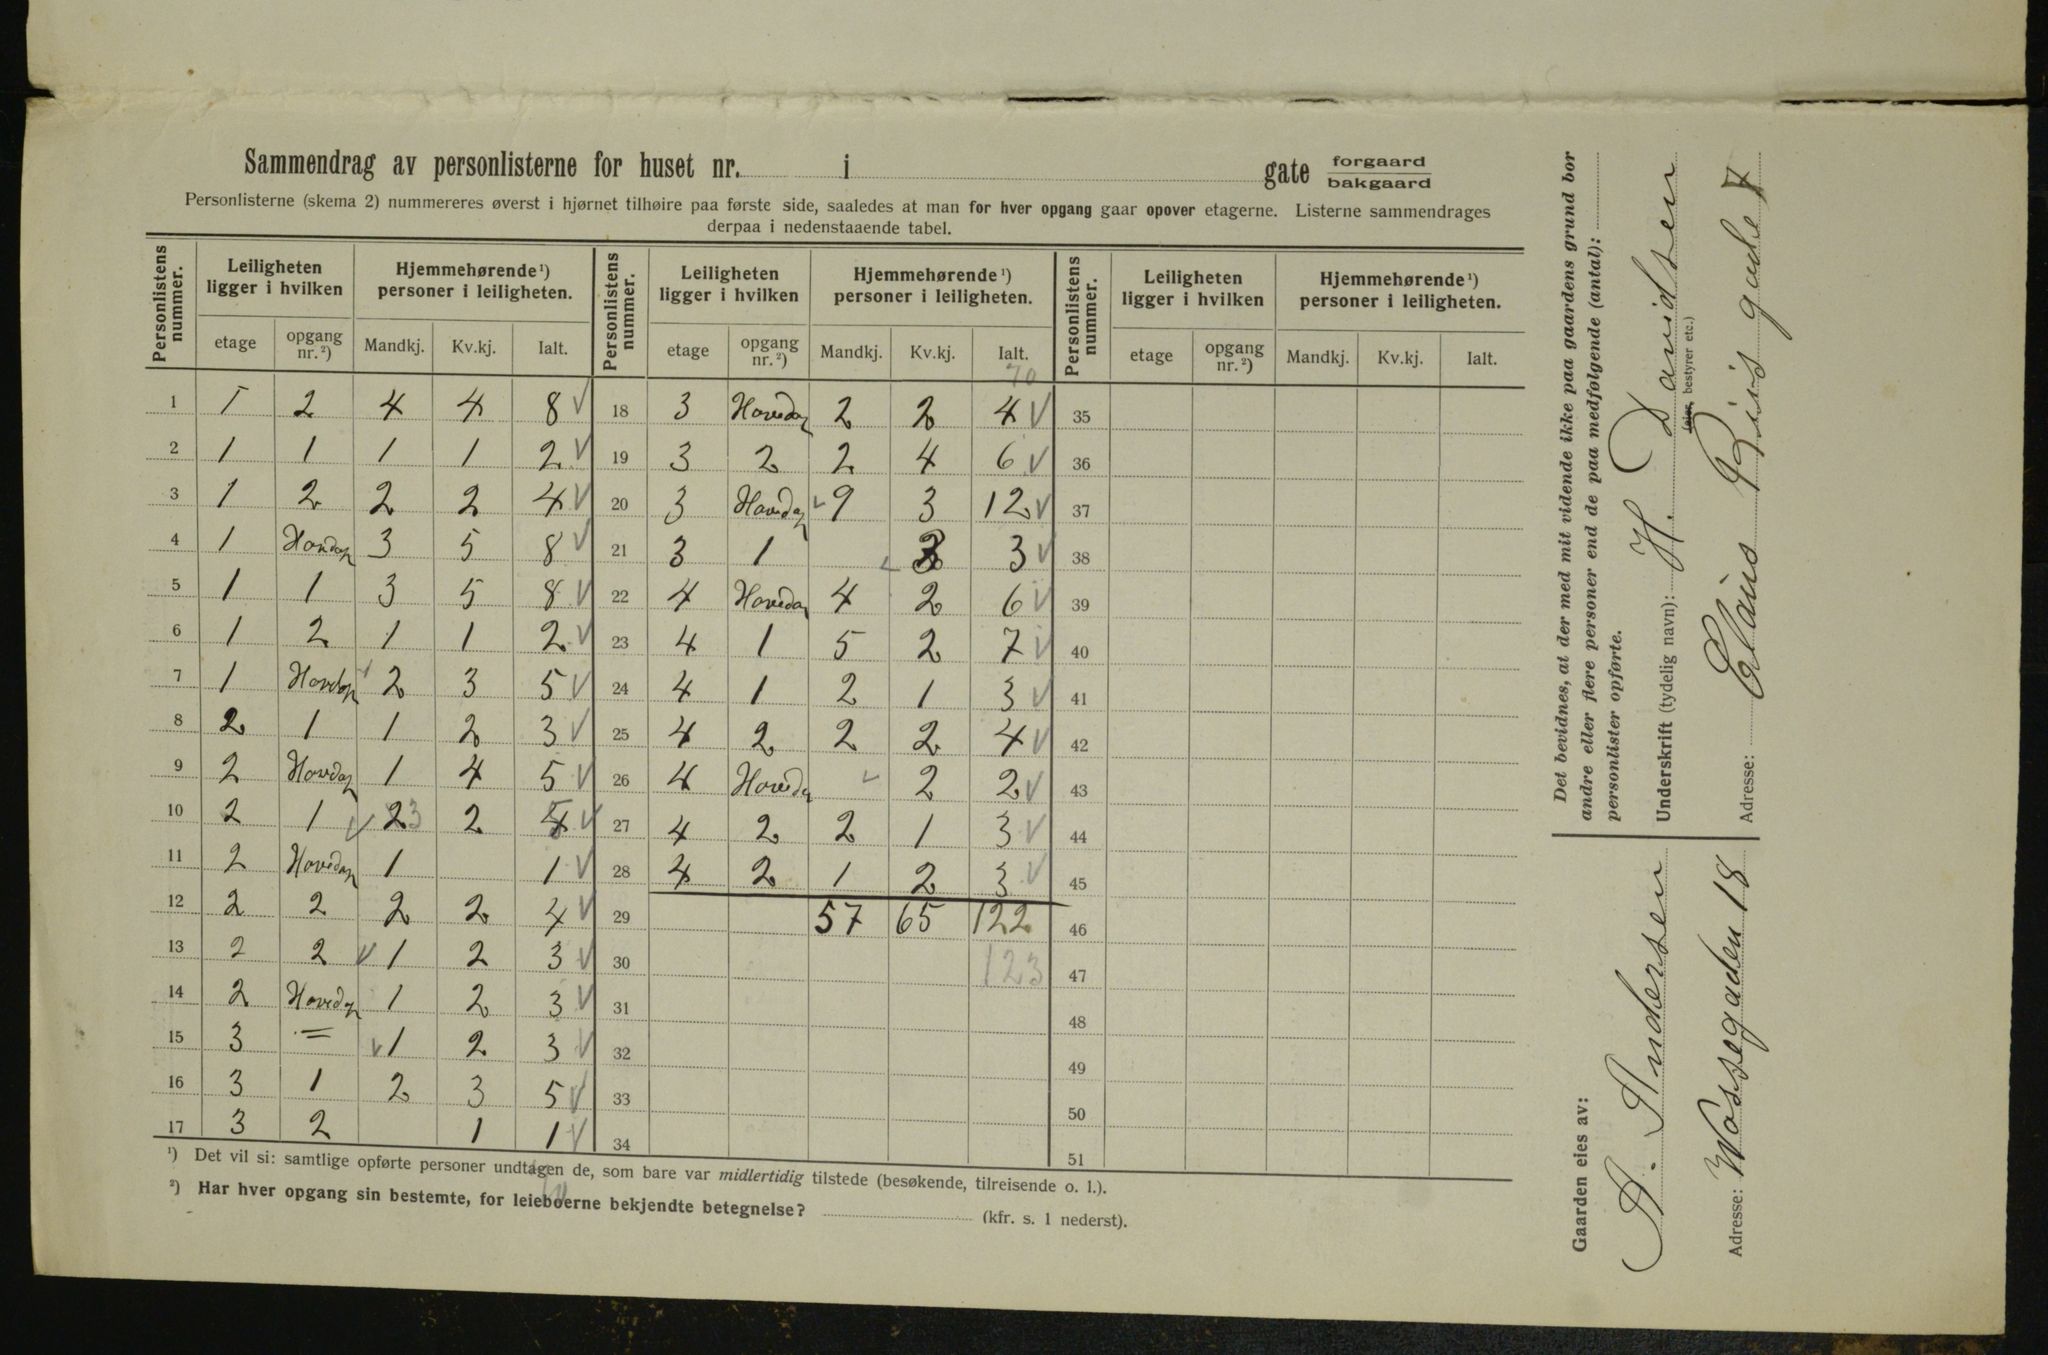 Sammendrag av personlisterne for huset nr. i gate forgaard bakgaard
Personlisterne (skema 2) nummereres øverst i hjørnet tilhøire paa første side, saaledes at man for hver opgang gaar opover etagerne. Listerne sammendrages
derpaa i nedenstaaende tabel.
Personlistens nummer. Leiligheten ligger i hvilken Hjemmehørende ¹) personer i leiligheten. Personlistens nummer. Leiligheten ligger i hvilken Hjemmehørende ¹) personer i leiligheten. Personlistens nummer. Leiligheten ligger i hvilken Hjemmehørende ¹) personer i leiligheten.
etage opgang nr. ²) Mandkj. Kv.kj. Ialt. etage opgang nr. ²) Mandkj. Kv.kj. Ialt. etage opgang nr. ²) Mandkj. Kv.kj. Ialt.
70
1 1 2 4 4 8 √ 18 3 Hovedop 2 2 4 √ 35
2 1 1 1 1 2 √ 19 3 2 2 4 6 √ 36
3 1 2 2 2 4 √ 20 3 Hovedop √ 9 3 12 √ 37
4 1 Hovdop 3 5 8 √ 21 3 1 √ 3 3 √ 38
5 1 1 3 5 8 √ 22 4 Hovedop 4 2 6 √ 39
6 1 2 1 1 2 √ 23 4 1 5 2 7 √ 40
7 1 Hovdop √ 2 3 5 √ 24 4 1 2 1 3 √ 41
8 2 1 1 2 3 √ 25 4 2 2 2 4 √ 42
9 2 Hovdop 1 4 5 √ 26 4 Hovedop √ 2 2 √ 43
10 2 1 √ 2 3 2 4 √ 27 4 2 2 1 3 √ 44
11 2 Hovedop 1 1 √ 28 4 2 1 2 3 √ 45
12 2 2 2 2 4 √ 29 57 65 122 46
13 2 2 √ 1 2 3 √ 30 123 47
14 2 Hovedop 1 2 3 √ 31 48
15 3 = √ 1 2 3 √ 32 49
16 3 1 2 3 5 √ 33 50
17 3 2 1 1 √ 34 51
¹) Det vil si: samtlige opførte personer undtagen de, som bare var midlertidig tilstede (besøkende, tilreisende o. l.).
²) Har hver opgang sin bestemte, for leieboerne bekjendte betegnelse? (kfr. s. 1 nederst).
Det bevidnes, at der med mit vidende ikke paa gaardens grund bor
andre eller flere personer end de paa medfølgende (antal):
personlister opførte.
Underskrift (tydelig navn): H. Davidsen
(eier, bestyrer etc.)
Adresse: Claus Riis gade 7
Gaarden eies av:
A. Andersen
Adresse: Vossegaden 18